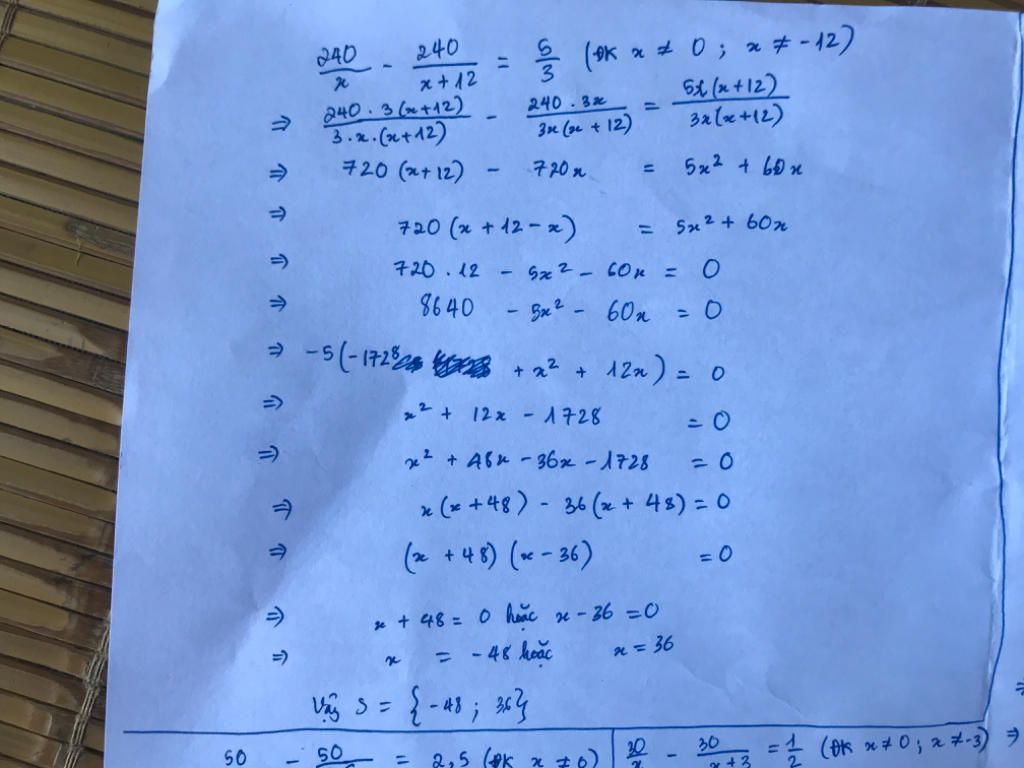 240/x - 240/x+12 = 5/3 (ĐK x ≠ 0 ; x ≠ -12)
⇒ 240 . 3(x+12)/3.x.(x+12) - 240 . 3x/3x(x + 12) = 5x(x+12)/3x(x+12)
⇒ 720 (x+12) - 720x = 5x² + 60x
⇒ 720 (x + 12 - x) = 5x² + 60x
⇒ 720 . 12 - 5x² - 60x = 0
⇒ 8640 - 5x² - 60x = 0
⇒ -5(-1728 + x² + 12x) = 0
⇒ x² + 12x - 1728 = 0
⇒ x² + 48x - 36x - 1728 = 0
⇒ x(x + 48) - 36(x + 48) = 0
⇒ (x + 48) (x - 36) = 0
⇒ x + 48 = 0 hoặc x - 36 = 0
⇒ x = -48 hoặc x = 36
Vậy S = {-48 ; 36}
50 - 50 = 2,5 (ĐK x ≠ 0)
30/x - 30/x+3 = 1/2 (ĐK x ≠ 0 ; x ≠ -3) ⇒